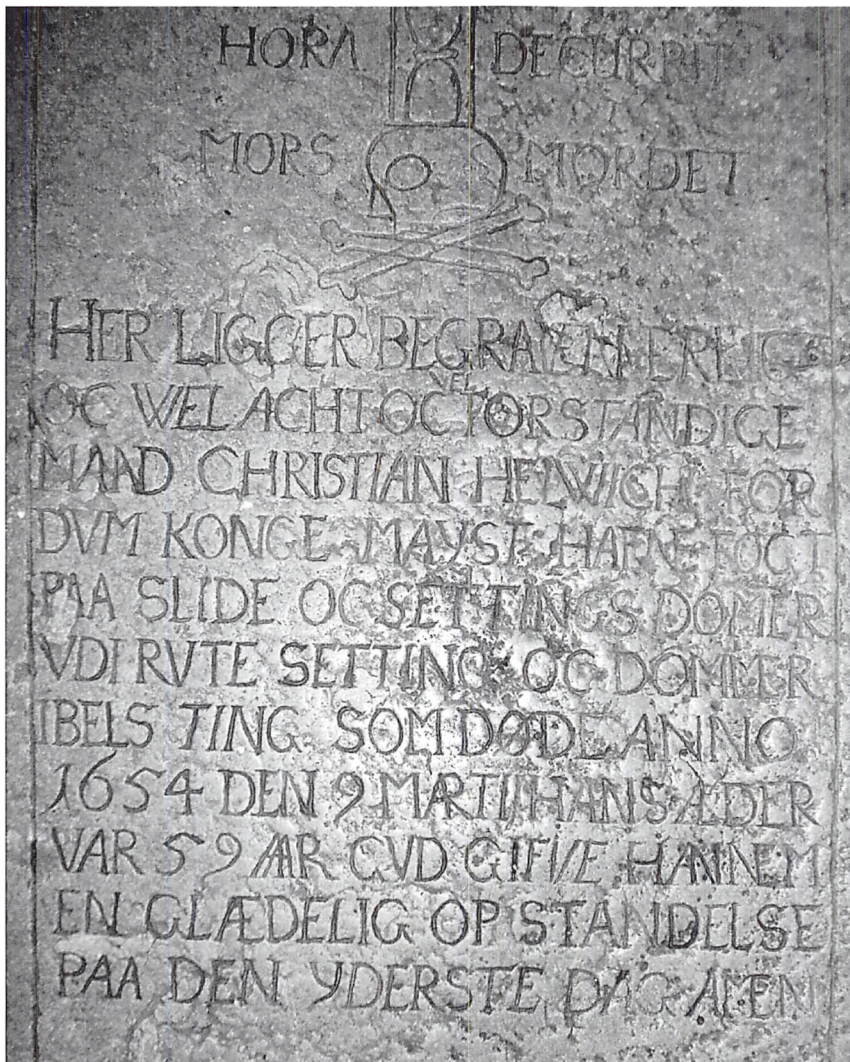 HORA DECURRIT
MORS MORDET
HER LIGGER BEGRAVEN ERLIG
VEL
OC WELACHT OC FORSTANDIGE
MAND CHRISTIAN HELWICH FOR
DVM KONGE MAYST HAFNE FOGT
PAA SLIDE OC SETTINGS DOMER
VDI RVTE SETTING OG DOMMER
IBELS TING SOM DØDE ANNO
1654 DEN 9 MARTII HANS ÆDER
VAR 59 AAR GVD GIFVE HANNEM
EN GLÆDELIG OPSTANDELSE
PAA DEN YDERSTE DAG AMEN